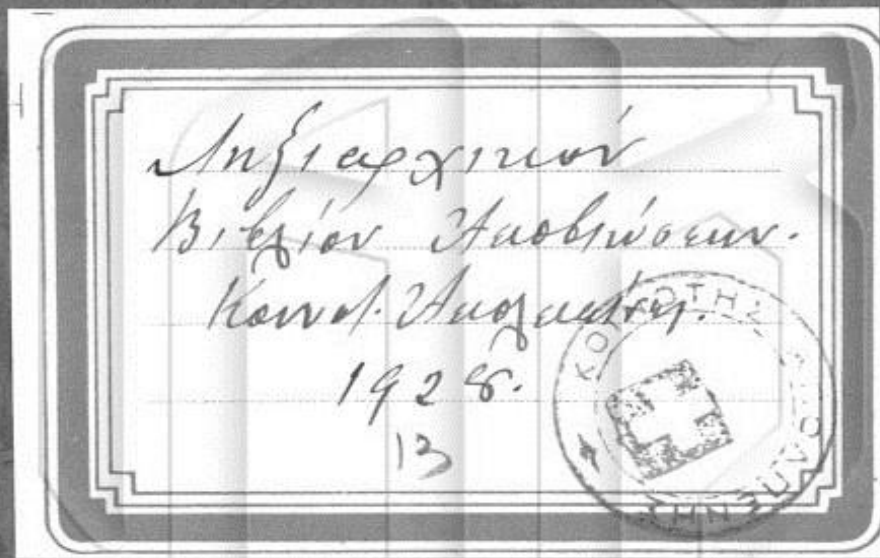 Ληξιαρχικόν
Βιβλίον Αποβιώσεων.
Κοινοτ.
1928.
13
ΚΟΙΝΟΤΗΣ